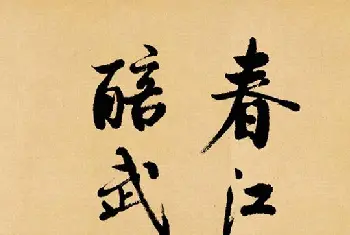 春江
醅武